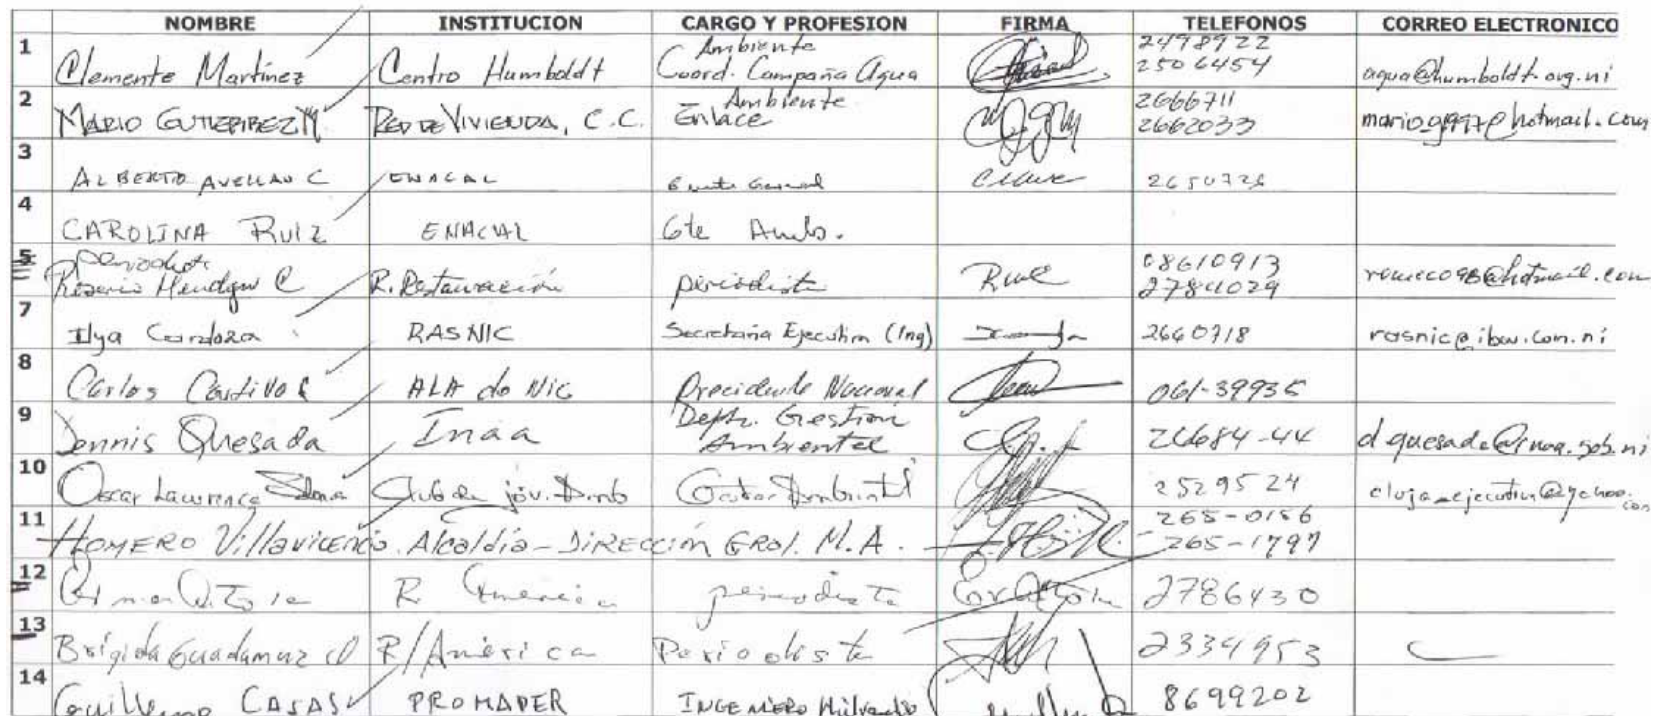 NOMBRE INSTITUCION CARGO Y PROFESION FIRMA TELEFONOS CORREO ELECTRONICO
1 Clemente Martínez Centro Humboldt Ambiente Coord. Campaña Agua 2478922 2506454 agua@humboldt.org.ni
2 MARIO GUTIERREZ M RED DE VIVIENDA, C.C. Ambiente Enlace 2666711 2662033
3 ALBERTO AVELLAN C ENACAL 2650726
4 CAROLINA RUIZ ENACAL Gte Amb.
5 periodista Rosario R. Restauración periodista 08610913 2784029
7 Ilya Cardoza RASNIC Secretaria Ejecutiva (Ing) 2660718 rasnic@ibw.com.ni
8 Carlos ALA de Nic Precidente Nacional 061-39935
9 Dennis Quesada Inaa Depto. Gestión Ambiental 26684-44 dquesada@inaa.gob.ni
10 Oscar Lawrence Club de jóv. Amb Gestor Ambiental 2529524
11 HOMERO Villavicencio Alcaldía - DIRECCIÓN GRal. M.A. 265-0156 265-1797
12 R. America periodista 2786430
13 Brígida Guadamuz R/América Periodista 2334953
14 Guillermo CASAS PROMAPER INGENIERO 8699202